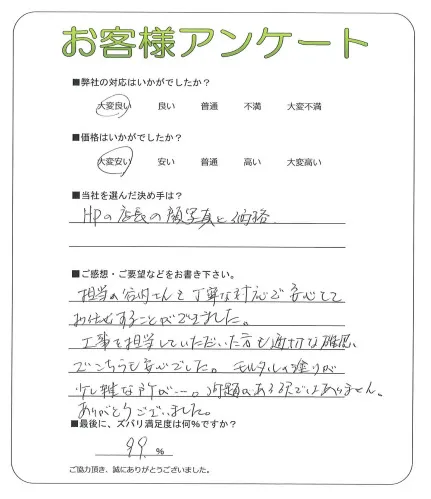 お客様アンケート
■弊社の対応はいかがでしたか？
大変良い 良い 普通 不満 大変不満
■価格はいかがでしたか？
大変安い 安い 普通 高い 大変高い
■当社を選んだ決め手は？
HPの店長の顔写真と価格
■ご感想・ご要望などをお書き下さい。
担当の宮村さんも丁寧な対応で安心して
お任せすることができました。
工事を担当していただいた方も適切な確認
でこちらも安心でした。モルタルの塗りが
少し雑な所が…。問題のある訳ではありません。
ありがとうございました。
■最後に、ズバリ満足度は何％ですか？
99 ％
ご協力頂き、誠にありがとうございました。